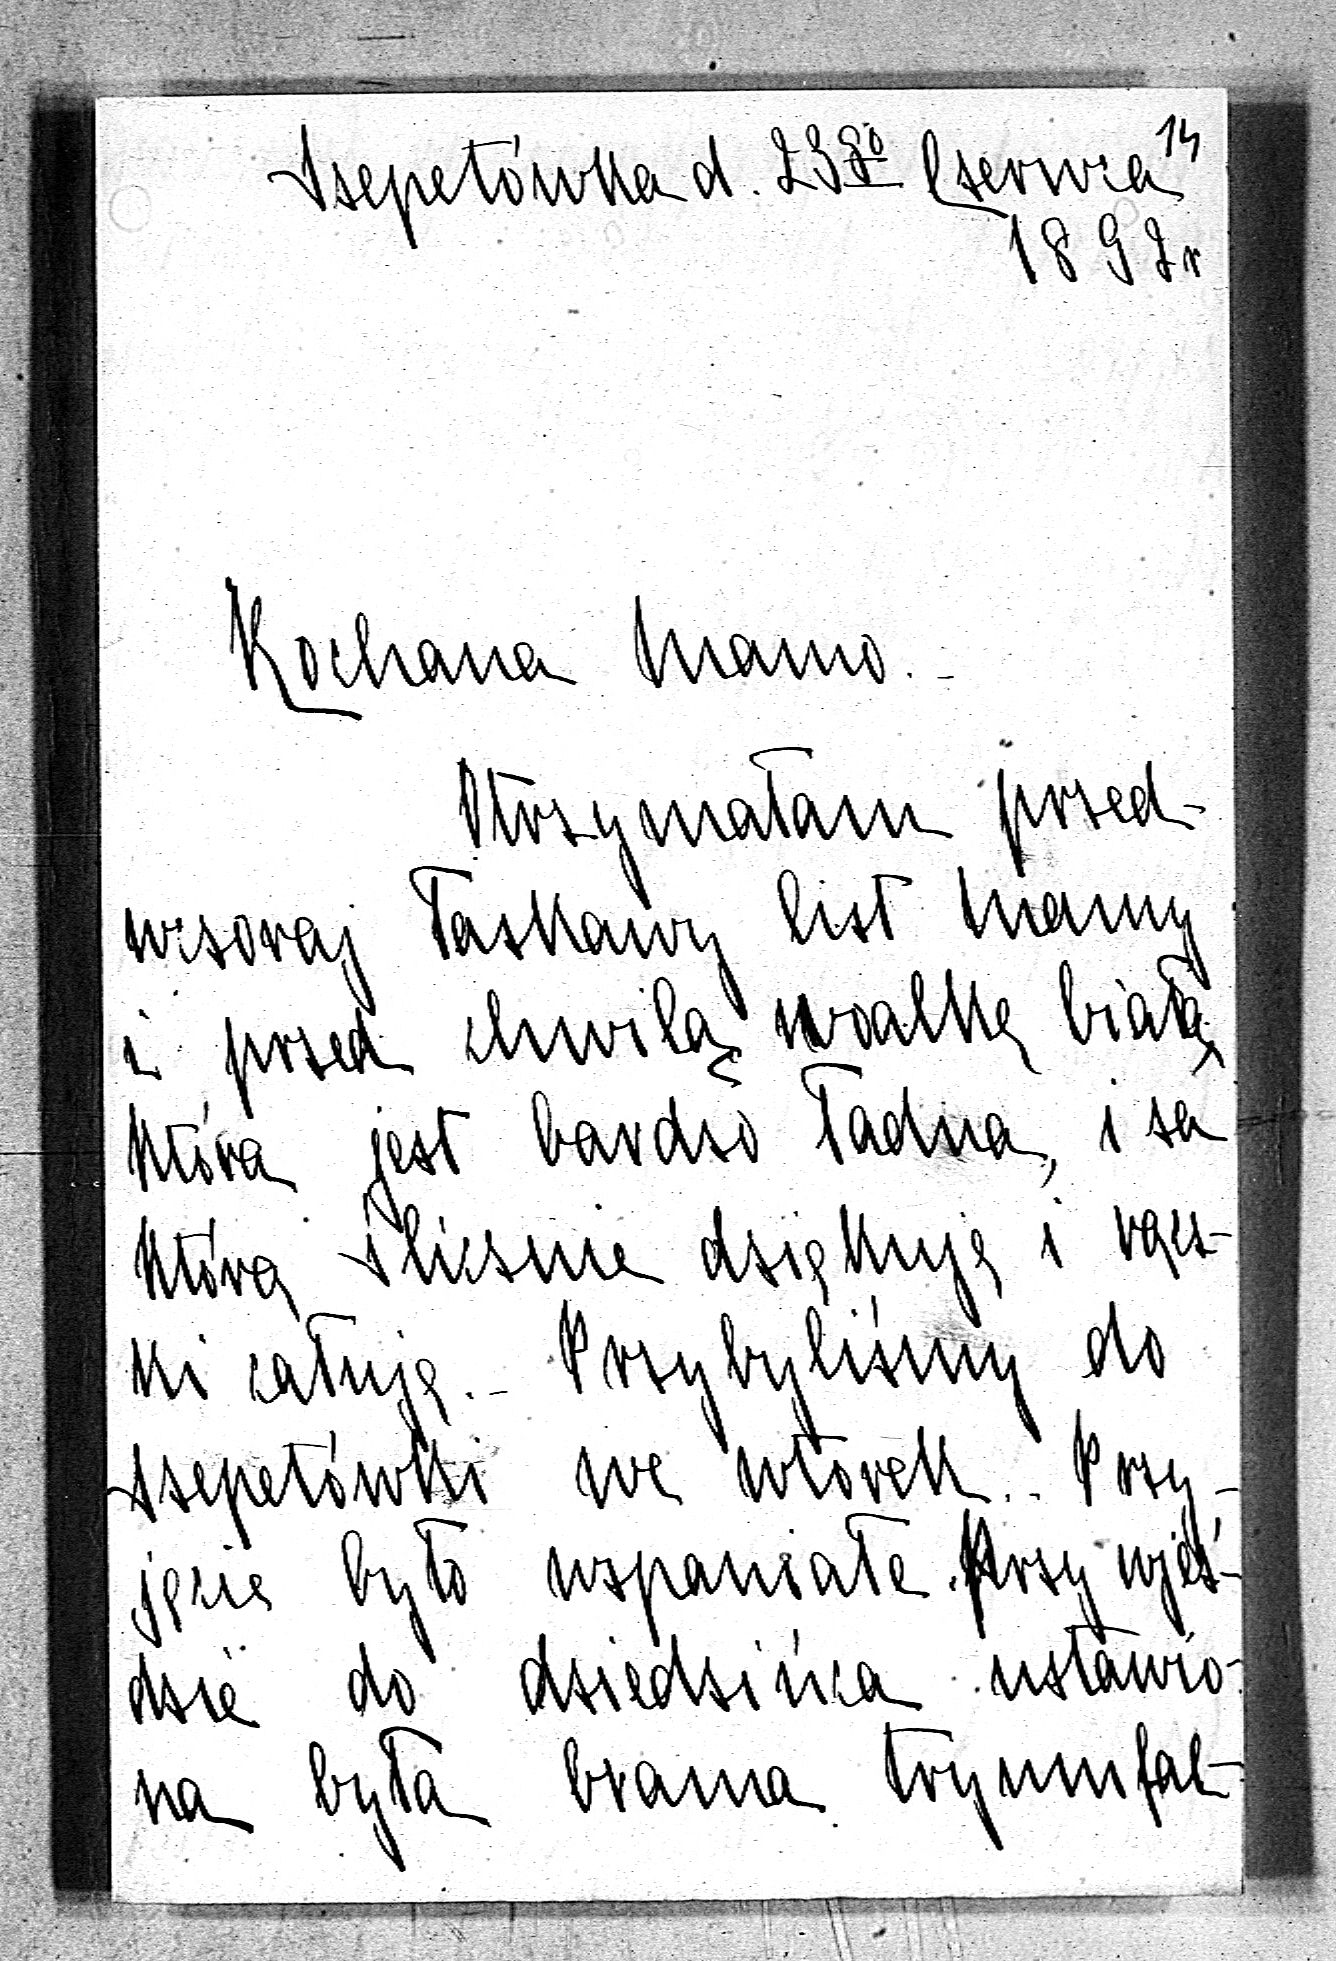 14
Szepetówka d. 23go Czerwca
1892 r
Kochana Mamo. -
Otrzymałam przed-
wczoraj łaskawy list Mamy
i przed chwilą woalkę białą
która jest bardzo ładna, i za
którą ślicznie dziękuję i rącz-
ki całuję. - Przybyliśmy do
Szepetówki we wtorek. - Przy-
jęcie było wspaniałe. Przy wjeź-
dzie do dziedzińca ustawio-
na była brama tryumfal-